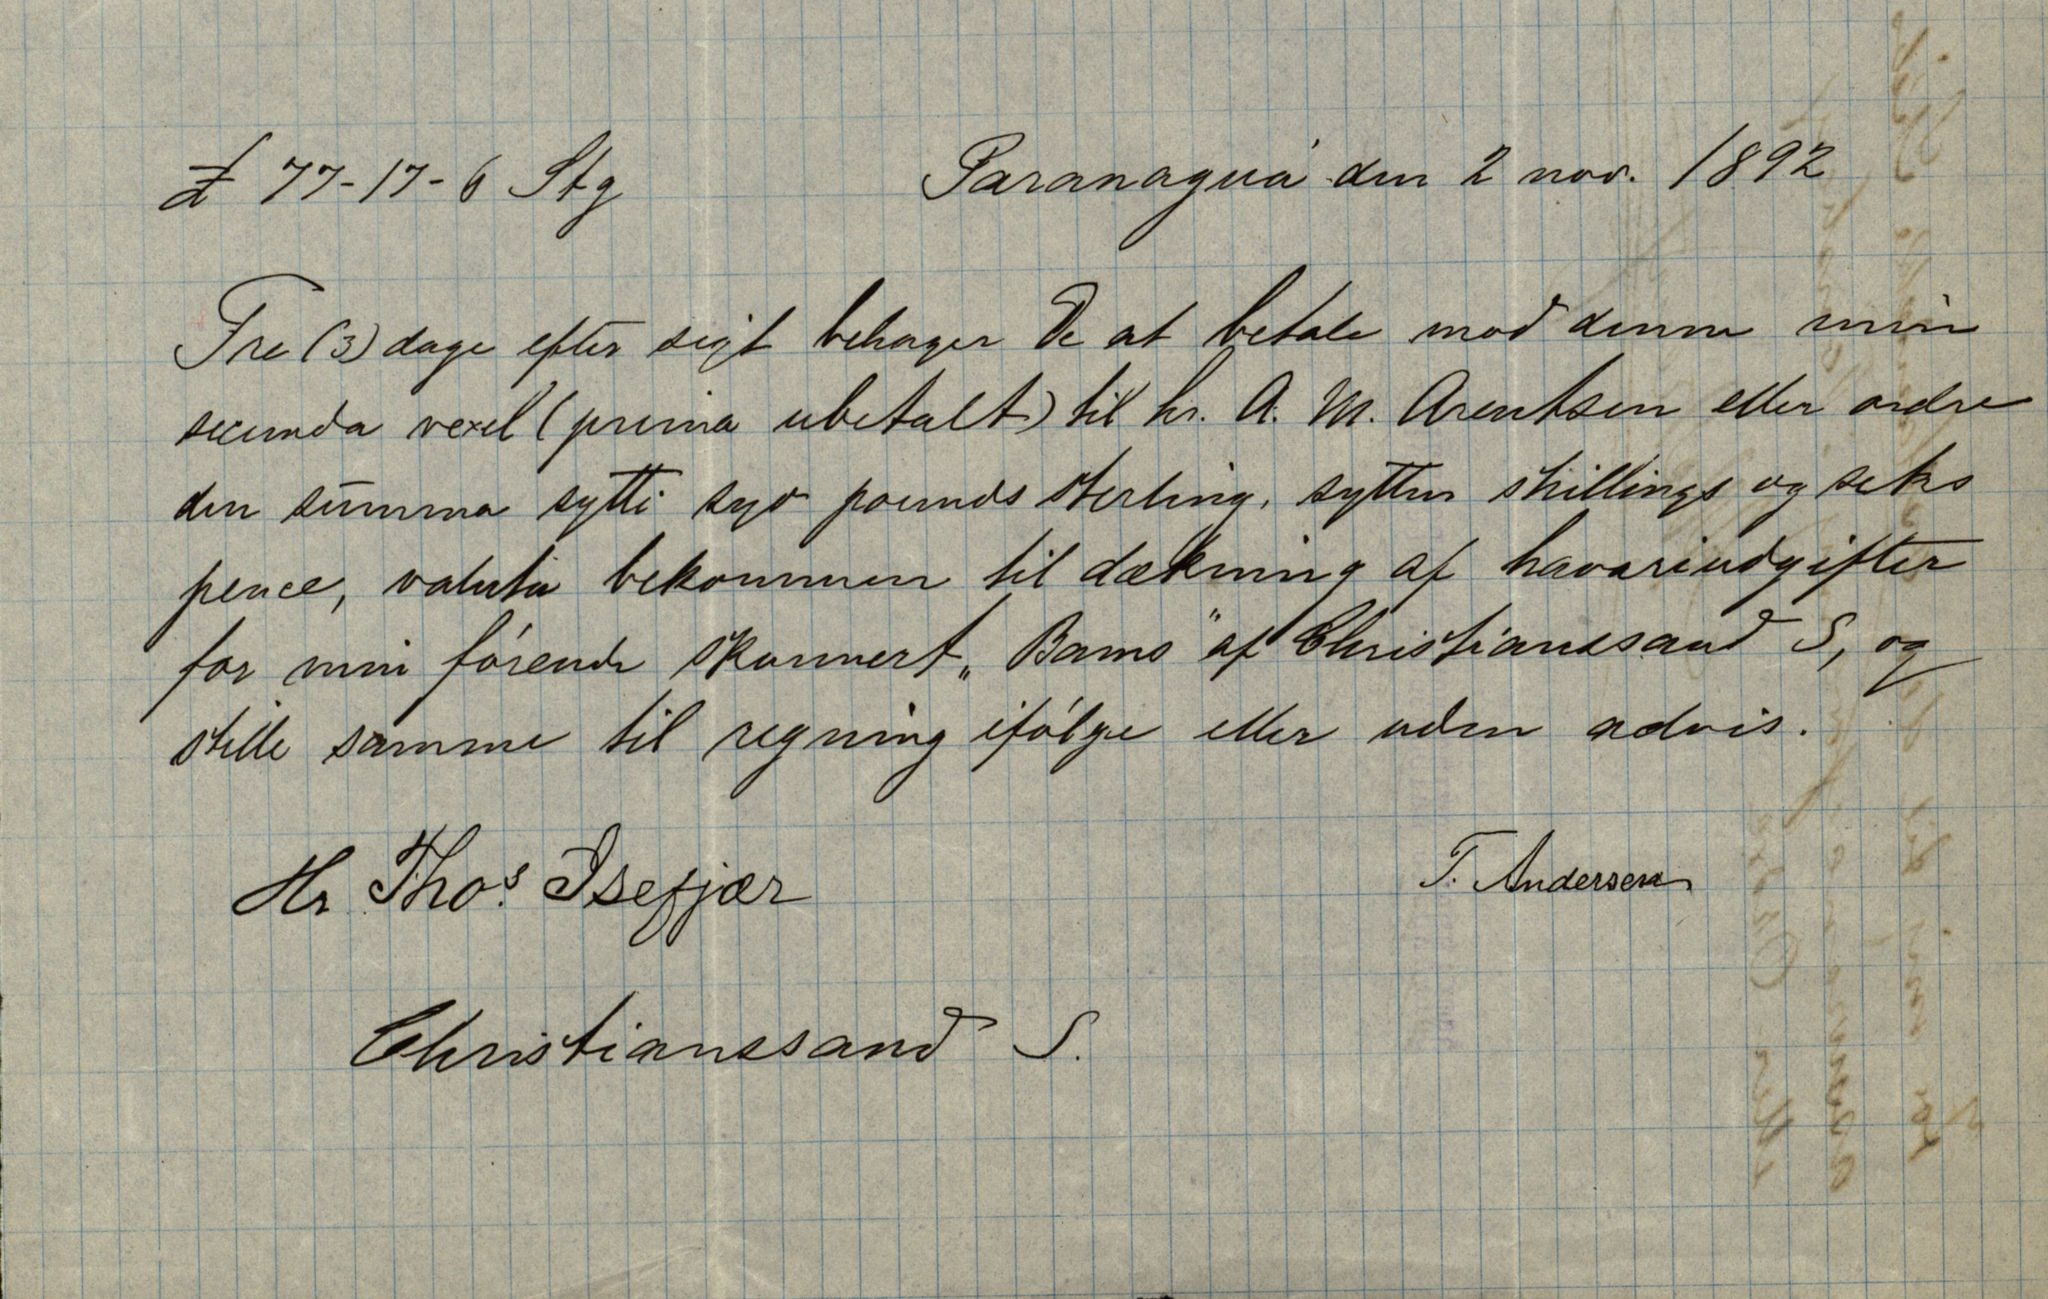 £ 77-17-6 Stg
Paranaguá den 2 nov. 1892
Tre (3) dage efter sigt behager De at betale mod denne min
secunda vexel (prima ubetalt) til hr. A. M. Arentsen eller ordre
den summa sytti syv pounds sterling, sytten shillings og seks
pence, valuta bekommen til dækning af havariudgifter
for min förende skonnert „Bams" af Christianssand S, og
stille samme til regning ifölge eller uden advis.
Hr Thos. Isefjær
T. Andersen
Christianssand S.